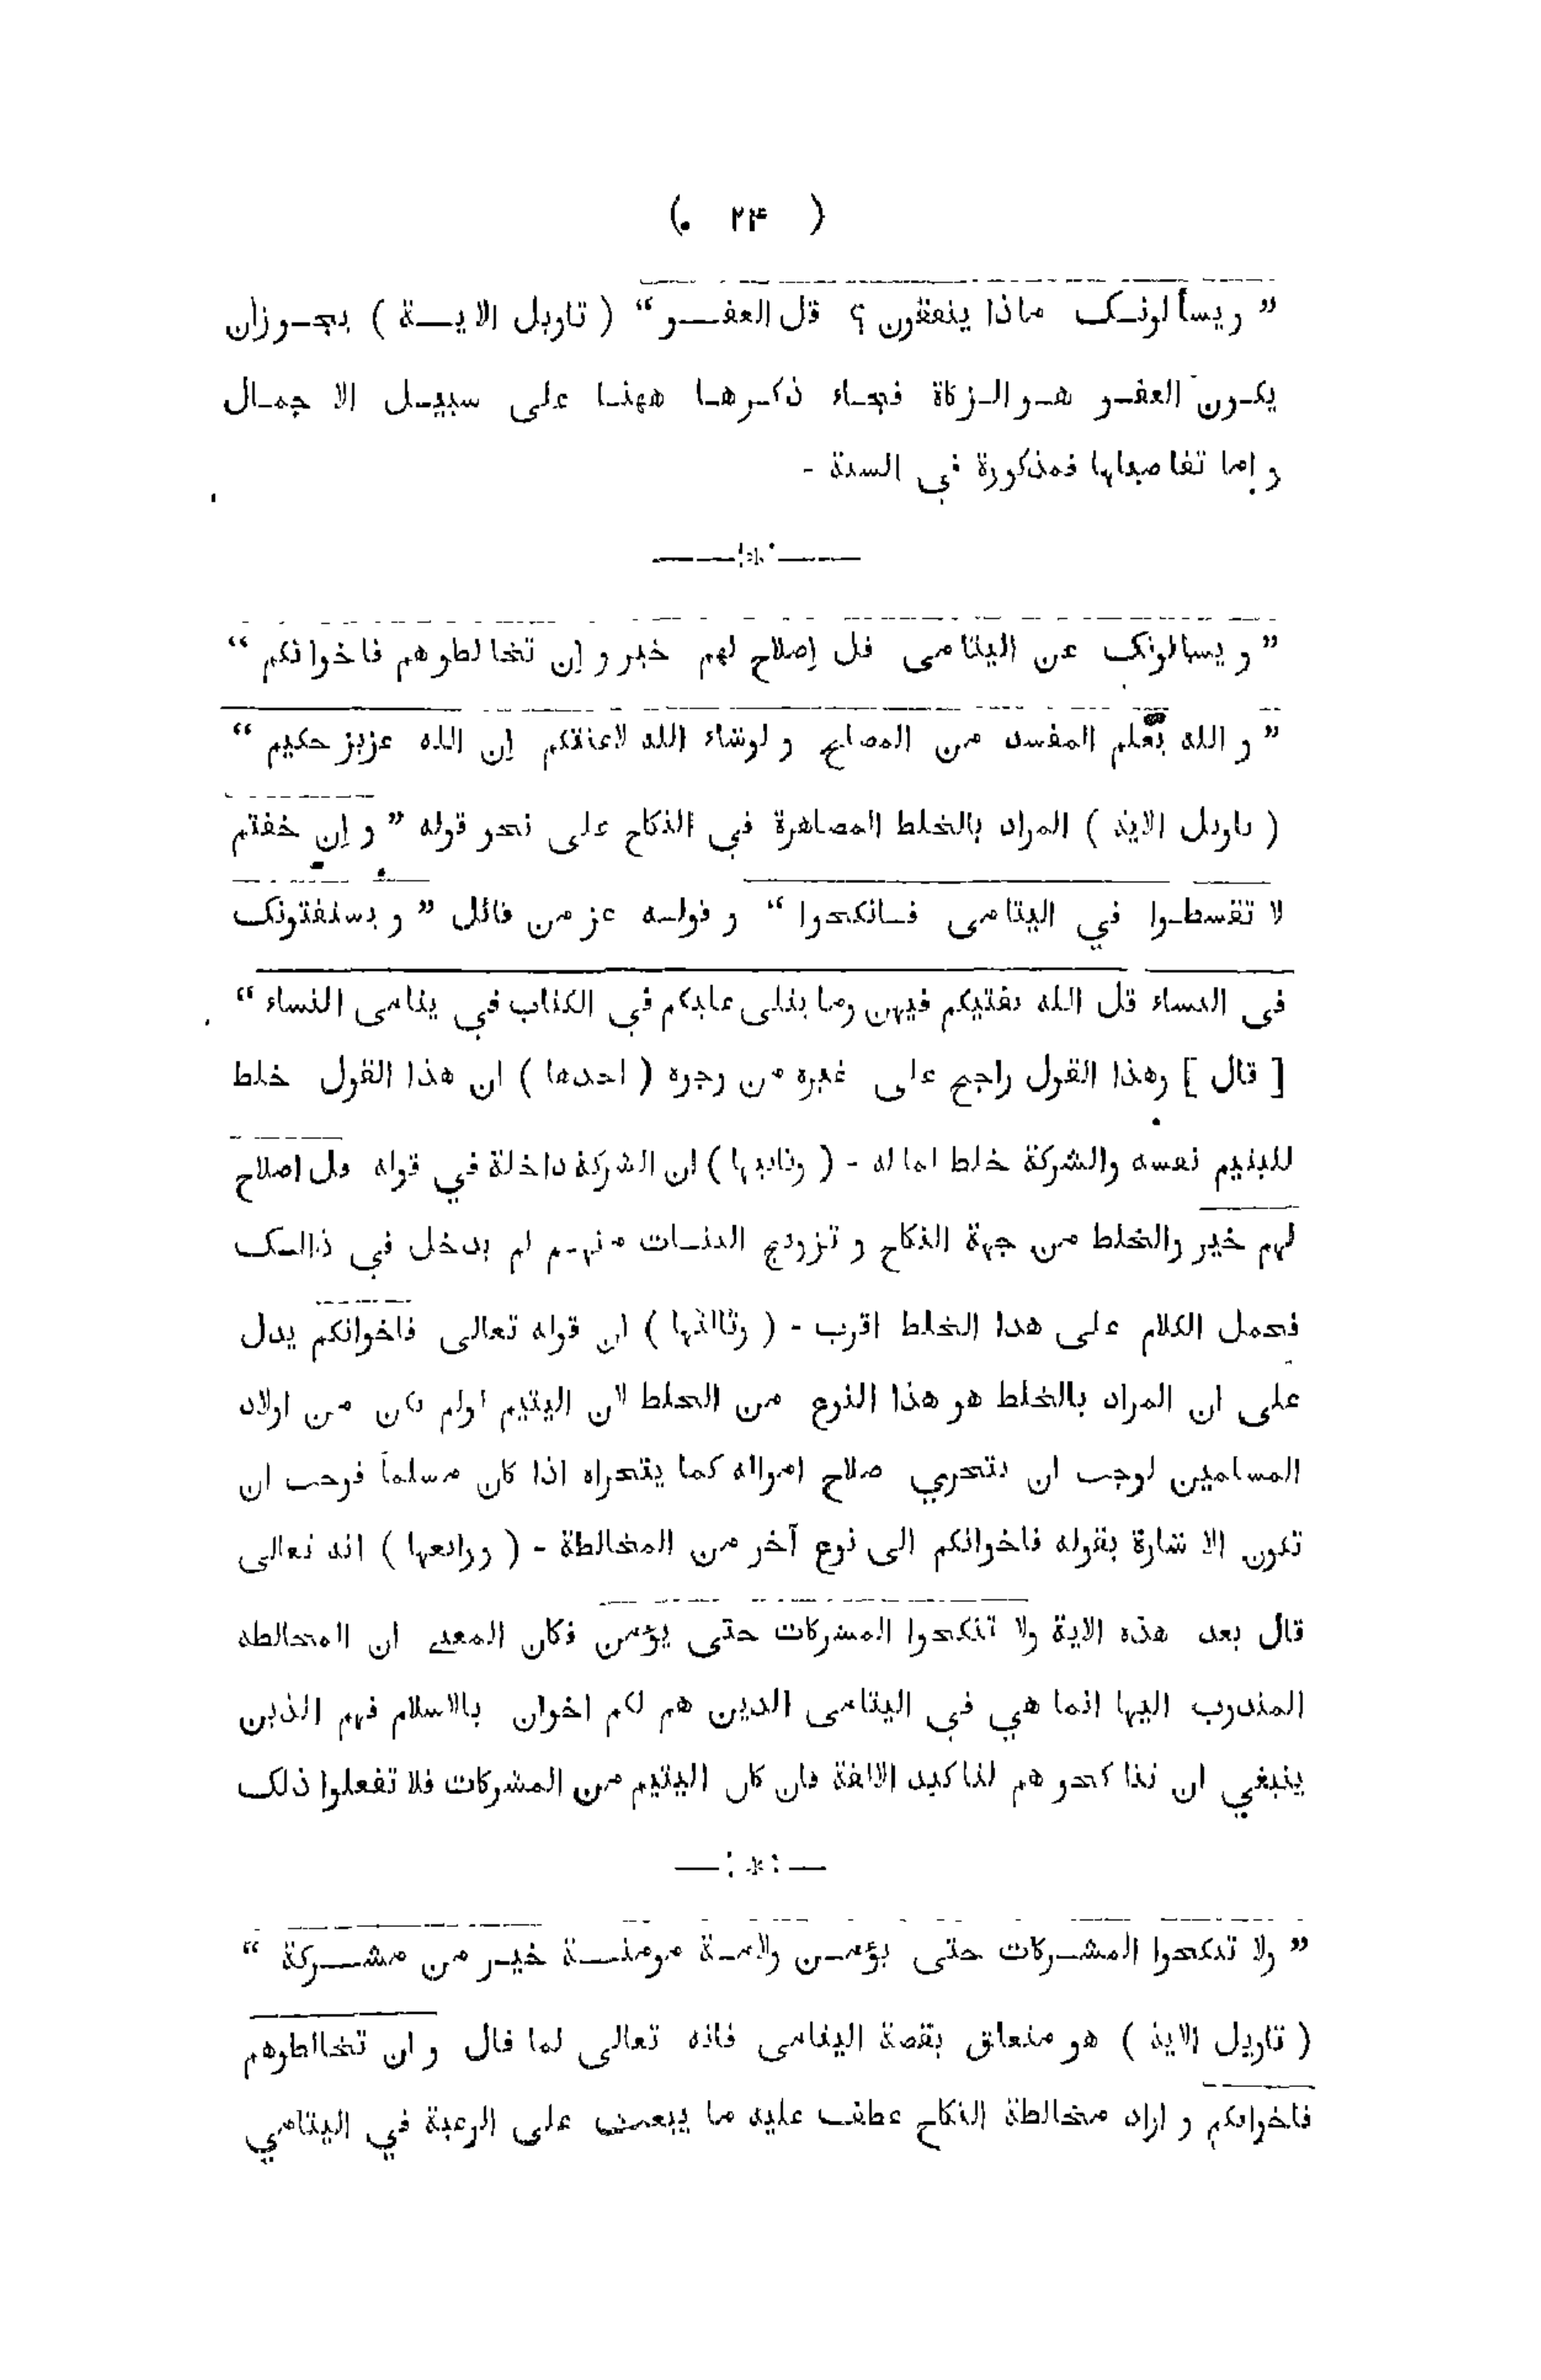 ( ۲۴ )
” ويسألونك ماذا ينفقون ؟ قل العفو “ ( تاويل الاية ) يجوزان
يكون العفو هو الزكاة فجاء ذكرها ههنا على سبيل الا جمال
و اما تفاصيلها فمذكورة في السنة -
—:*:—
” و يسالونك عن اليتامى قل إصلاح لهم خير و إن تخالطوهم فاخوانكم “
” و الله يعلم المفسد من المصلح و لوشاء الله لاعنتكم إن الله عزيز حكيم “
( تاويل الاية ) المراد بالخلط المصاهرة في النكاح على نحو قوله ” و إن خفتم
لا تقسطوا في اليتامى فانكحوا “ و قوله عز من قائل ” و يستفتونك
فى النساء قل الله يفتيكم فيهن وما يتلى عليكم في الكتاب في يتامى النساء “
[ قال ] وهذا القول راجح على غيره من وجوه ( احدها ) ان هذا القول خلط
لليتيم نفسه والشركة خلط لماله - ( وثانيها ) ان الشركة داخلة في قوله قل اصلاح
لهم خير والخلط من جهة النكاح و تزويج البنات منهم لم يدخل في ذالك
فحمل الكلام على هذا الخلط اقرب - ( وثالثها ) ان قوله تعالى فاخوانكم يدل
على ان المراد بالخلط هو هذا النوع من الخلط لان اليتيم لولم يكن من اولاد
المسلمين لوجب ان يتحري صلاح امواله كما يتحراه اذا كان مسلماً فوجب ان
تكون الا شارة بقوله فاخوانكم الى نوع آخر من المخالطة - ( ورابعها ) انه تعالى
قال بعد هذه الاية ولا تنكحوا المشركات حتى يؤمن فكان المعنى ان المخالطه
المندوب اليها انما هي في اليتامى الذين هم لكم اخوان بالاسلام فهم الذين
ينبغي ان تنا كحو هم لتاكيد الالفة فان كان اليتيم من المشركات فلا تفعلوا ذلك
—:*:—
” ولا تنكحوا المشركات حتى يؤمن ولامة مومنة خير من مشركة “
( تاويل الاية ) هو متعلق بقصة اليتامى فانه تعالى لما قال و ان تخالطوهم
فاخوانكم و اراد مخالطة النكاح عطف عليه ما يبعث على الرغبة في اليتامي